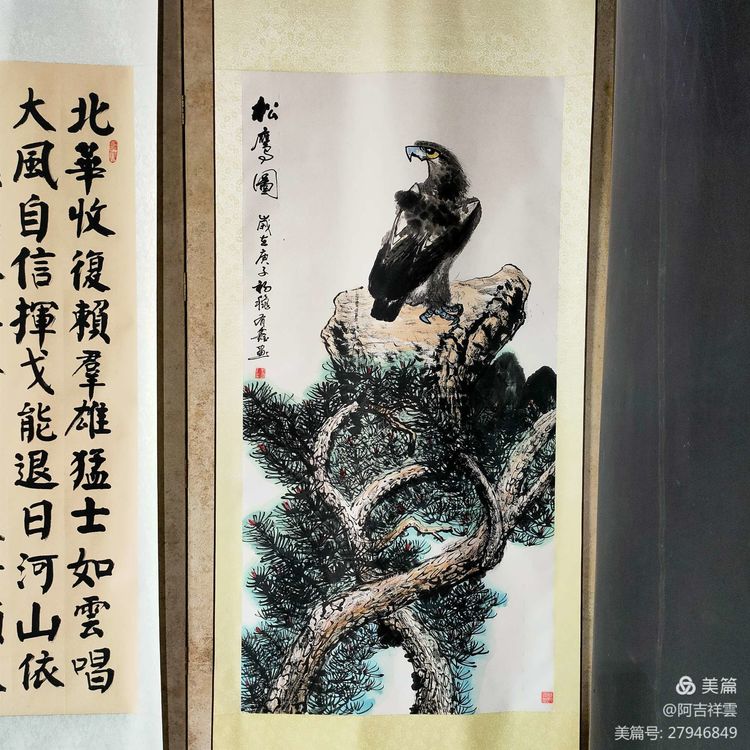 北華收復賴羣雄猛士如雲唱
大風自信揮戈能退日河山依
松鷹圖
歲在庚子初穐有畫
美篇
@阿吉祥雲
美篇号: 27946849